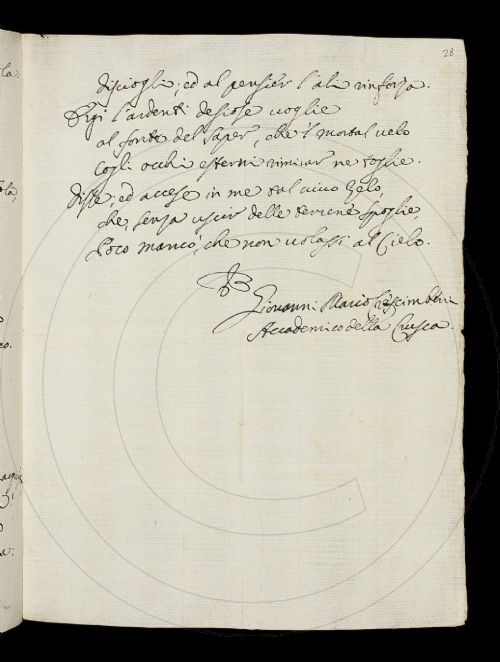 28
disciogli; ed al pensier l'ali rinforza.
Ergi l'ardenti desiose voglie
al fonte del saper, che 'l mortal velo
cogli occhi esterni rimirar ne toglie.
Disse, ed accese in me tal vivo zelo,
che, senza uscir delle terrene spoglie,
Poco mancò, che non volassi al Cielo.
Giovanni Mario Crescimbeni
Accademico della Crusca.